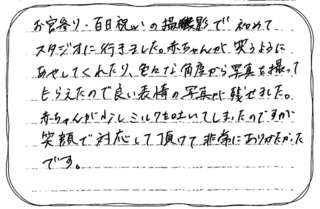 お宮参り・百日祝いの撮影で初めて
スタジオに行きました。赤ちゃんが笑うように
あやしてくれたり、色々な角度から写真を撮って
もらえたので良い表情の写真が残せました。
赤ちゃんが少しミルクを吐いてしまったのですが
笑顔で対応して頂けて非常にありがたかった
です。